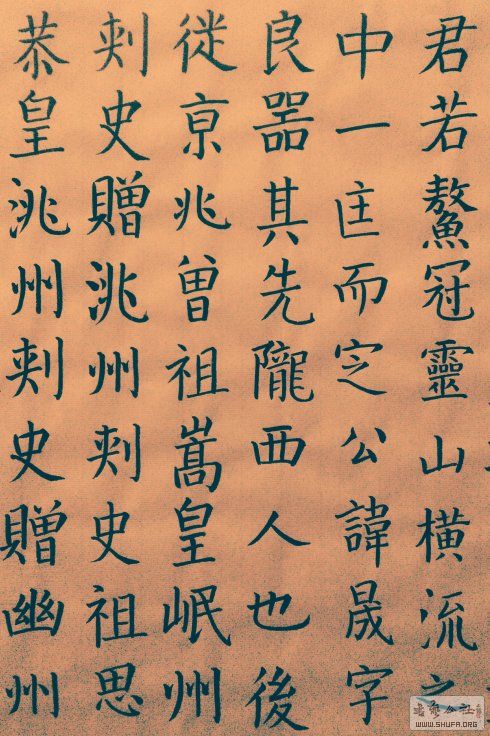 君若鰲冠靈山橫流之
中一匡而定公諱晟字
良器其先隴西人也後
徙京兆曾祖嵩皇岷州
刺史贈洮州刺史祖思
恭皇洮州刺史贈幽州
WWW.SHUFA.ORG